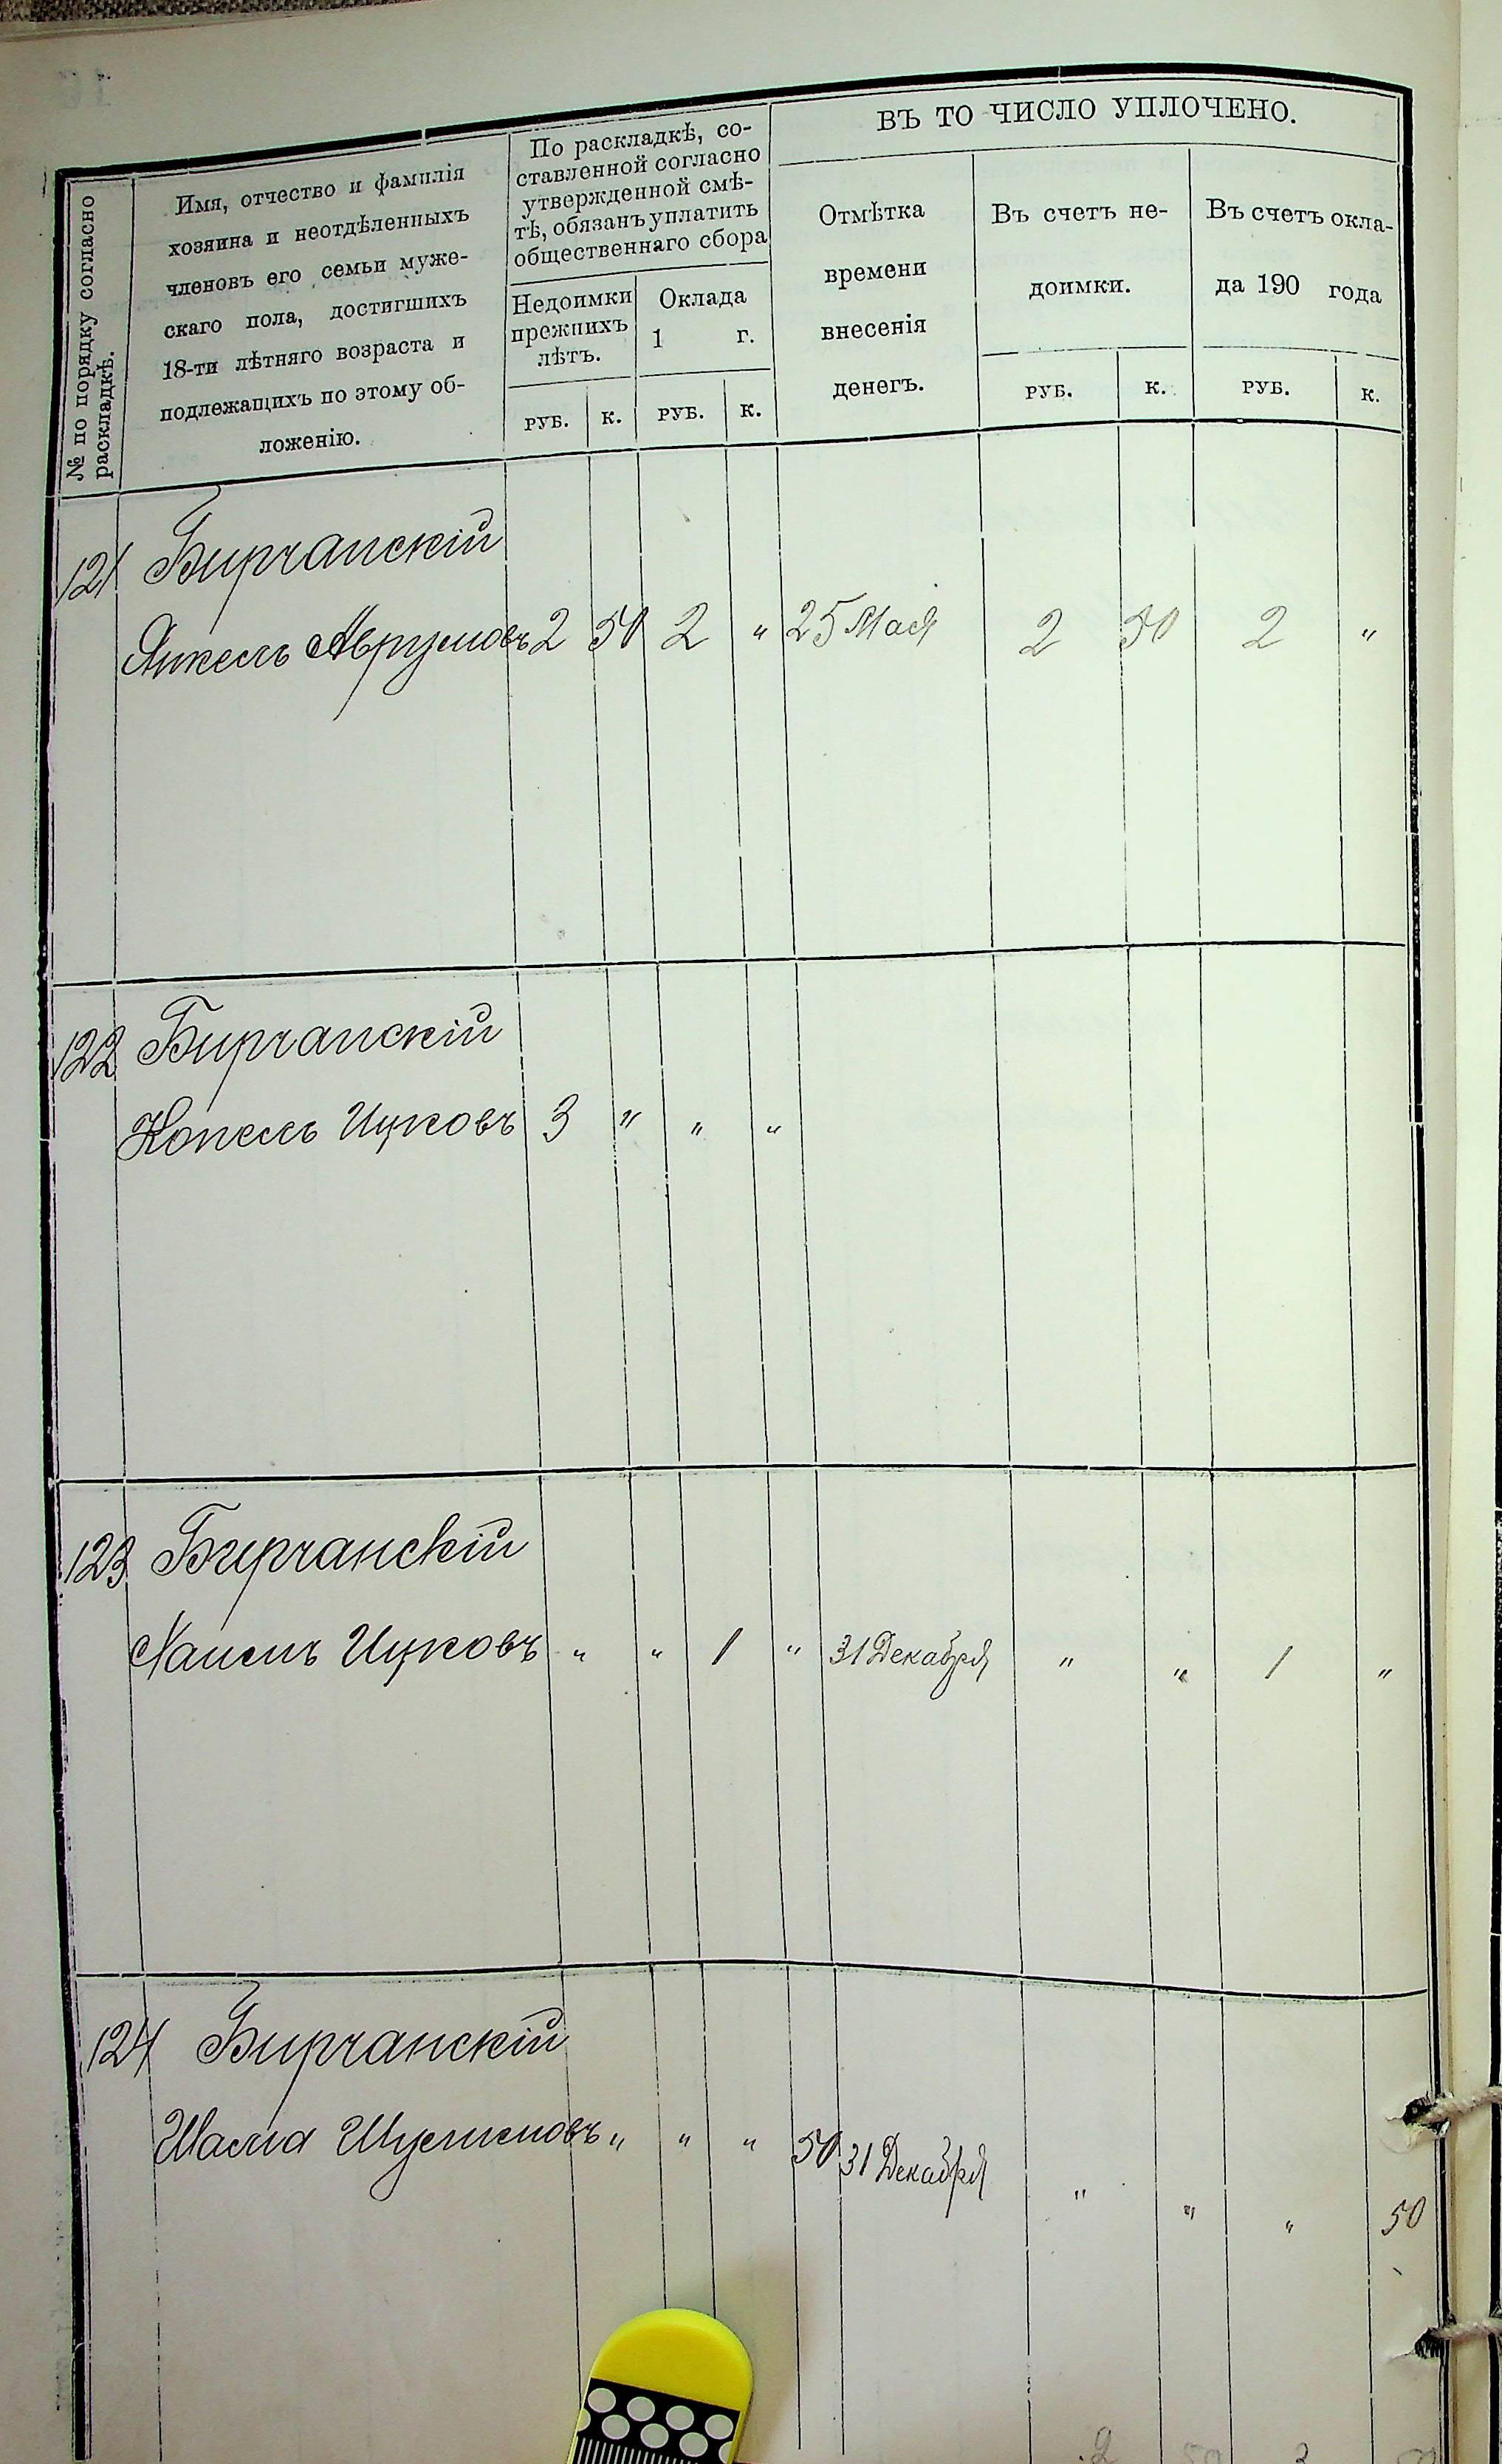 ВЪ ТО ЧИСЛО УПЛОЧЕНО.
№ по порядку согласно
раскладкѣ.
Имя, отчество и фамилія
хозяина и неотдѣленныхъ
членовъ его семьи муже-
скаго пола, достигшихъ
18-ти лѣтняго возраста и
подлежащихъ по этому об-
ложенію.
По раскладкѣ, со-
ставленной согласно
утвержденной смѣ-
тѣ, обязанъ уплатить
общественнаго сбора
Недоимки
прежнихъ
лѣтъ.
Оклада
1 г.
Отмѣтка
времени
внесенія
денегъ.
Въ счетъ не-
доимки.
Въ счетъ окла-
да 190 года
РУБ. К. РУБ. К. РУБ. К. РУБ. К.
121 Бирчанскій
Янкель Аврумовъ 2 50 2 " 25 Мая 2 50 2 "
122 Бирчанскій
Копель Ицковъ 3 " " "
123 Бирчанскій
Ицковъ " " 1 " 31 Декабря " " 1 "
124 Бирчанскій
" " " 50 31 Декабря " " " 50